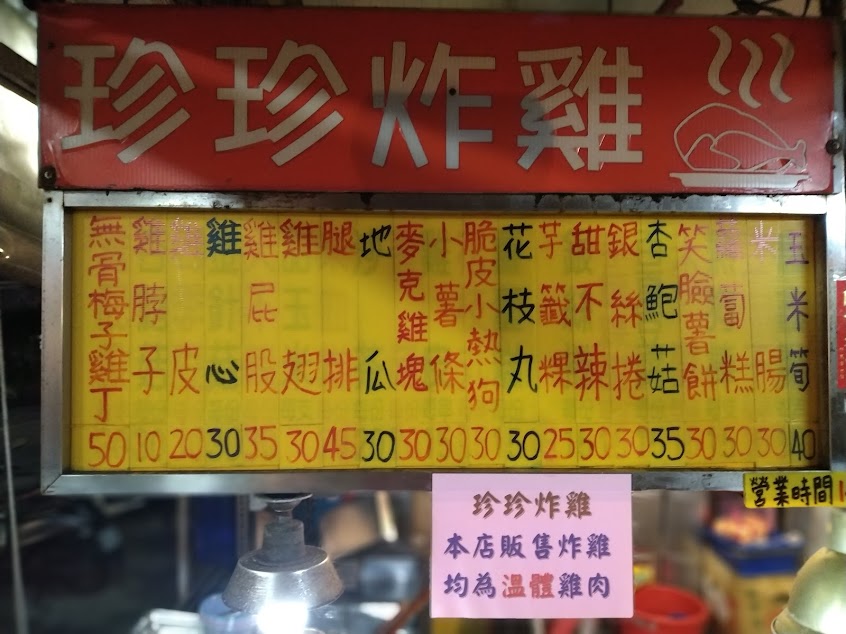 珍珍炸雞
無骨梅子雞丁 50
雞脖子 10
雞皮 20
雞心 30
雞屁股 35
雞翅 30
腿排 45
地瓜 30
麥克雞塊 30
小薯條 30
脆皮小熱狗 30
花枝丸 30
芋籤粿 25
甜不辣 30
銀絲捲 30
杏鮑菇 35
笑臉薯餅 30
蘿蔔糕 30
米腸 30
玉米筍 40
營業時間
珍珍炸雞
本店販售炸雞
均為溫體雞肉